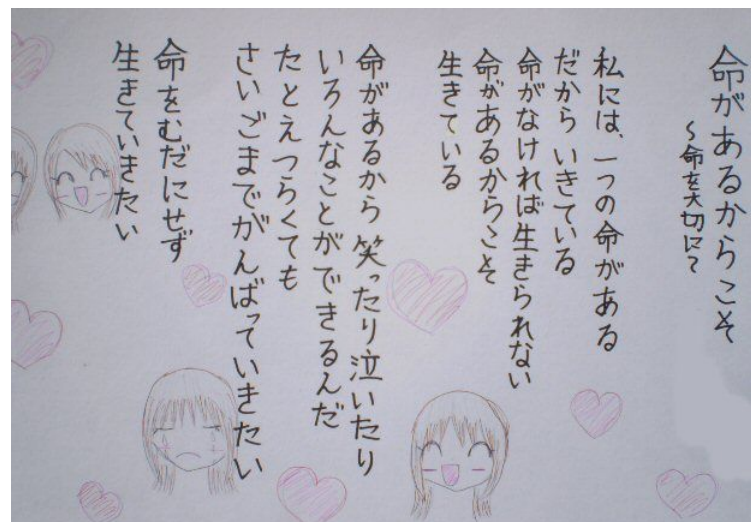 命があるからこそ
～命を大切に～
私には、一つの命がある
だから いきている
命がなければ生きられない
命があるからこそ
生きている
命があるから 笑ったり泣いたり
いろんなことができるんだ
たとえつらくても
さいごまでがんばっていきたい
命をむだにせず
生きていきたい